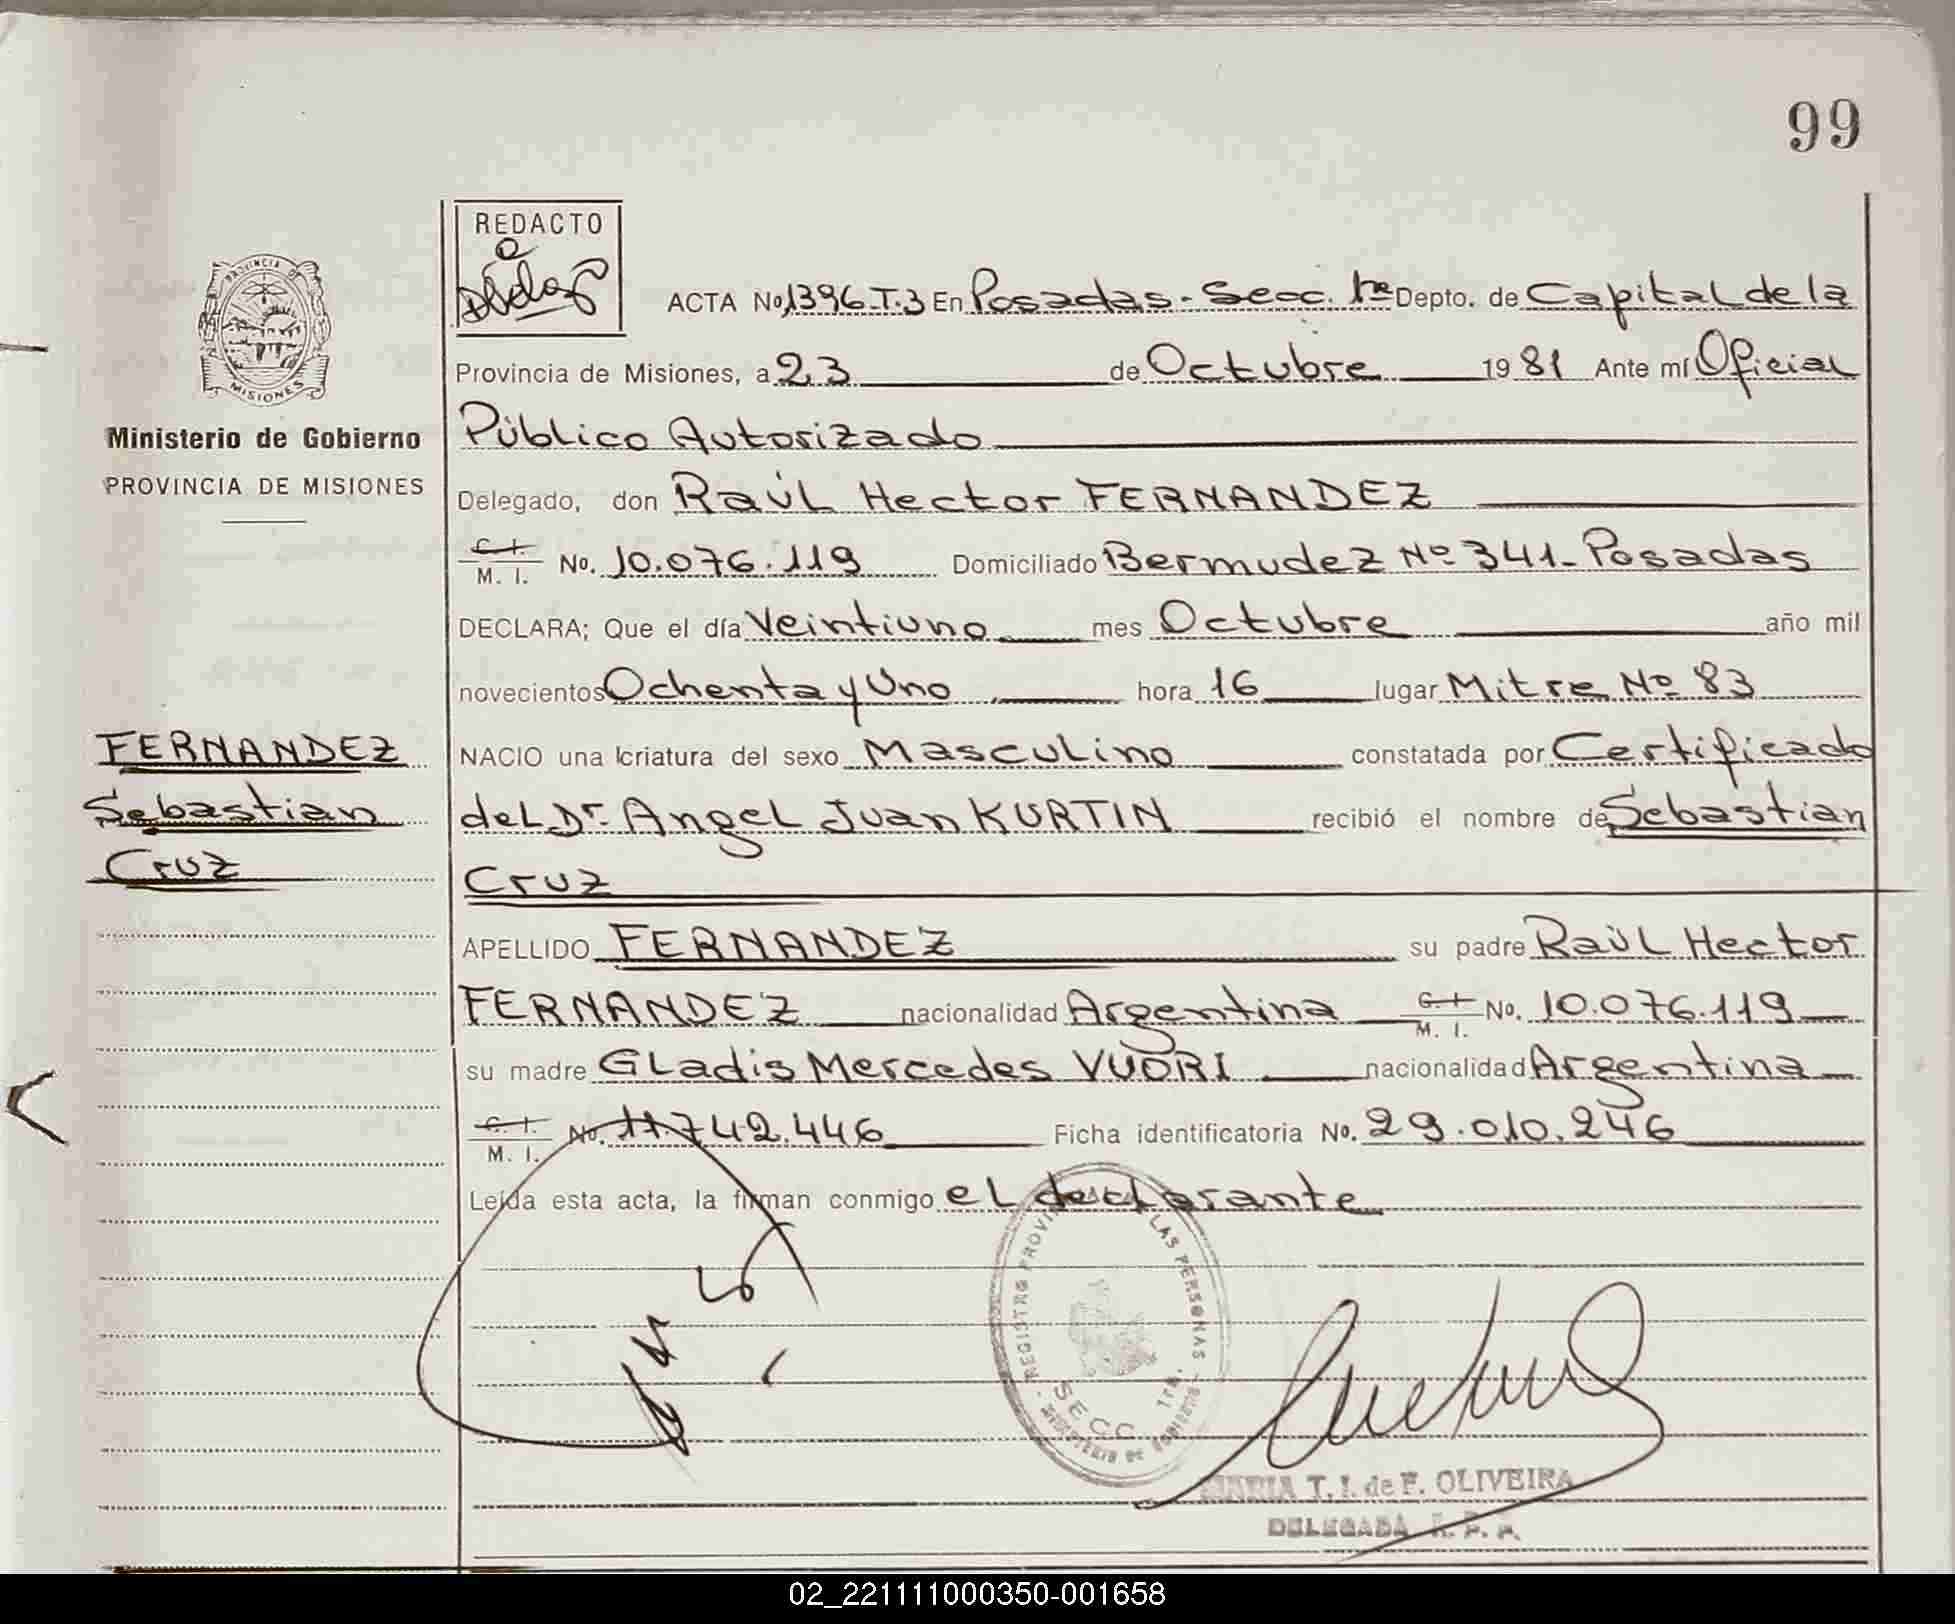 99
REDACTO
PROVINCIA DE
MISIONES
Ministerio de Gobierno
PROVINCIA DE MISIONES
ACTA No. 1396.T.3 En Posadas - Secc. 1ra Depto. de Capital de la
Provincia de Misiones, a 23 de Octubre 1981 Ante mí Oficial
Público Autorizado
Delegado, don Raúl Hector FERNANDEZ
C. I.
M. I. No. 10.076.119 Domiciliado Bermudez Nº 341 - Posadas
DECLARA; Que el día Veintiuno mes Octubre año mil
novecientos Ochenta y Uno hora 16 lugar Mitre Nº 83
FERNANDEZ
Sebastian
Cruz
NACIO una criatura del sexo Masculino constatada por Certificado
del Dr. Angel Juan KURTIN recibió el nombre de Sebastian
Cruz
APELLIDO FERNANDEZ su padre Raúl Hector
FERNANDEZ nacionalidad Argentina C. I. M. I. No. 10.076.119
su madre Gladis Mercedes VUORI nacionalidad Argentina
C. I.
M. I. No. 11.742.446 Ficha identificatoria No. 29.010.246
Leída esta acta, la firman conmigo el declarante
REGISTRO LAS PERSONAS
SECC. 1ra.
MINISTERIO DE GOBIERNO
MARIA T. I. de F. OLIVEIRA
DELEGADA R. P. P.
02_221111000350-001658